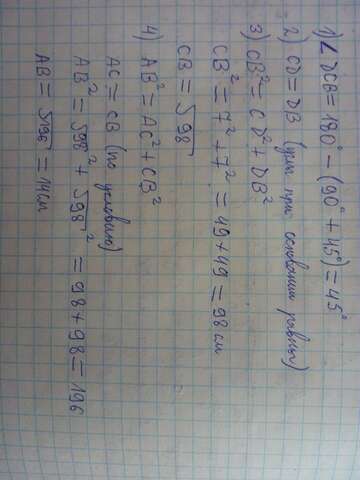 1) ∠DCB = 180° - (90° + 45°) = 45°
2) CD = DB (углы при основании равны)
3) CB² = CD² + DB²
CB² = 7² + 7² = 49 + 49 = 98 см
CB = √98
4) AB² = AC² + CB²
AC = CB (по условию)
AB² = √98² + √98² = 98 + 98 = 196
AB = √196 = 14 см